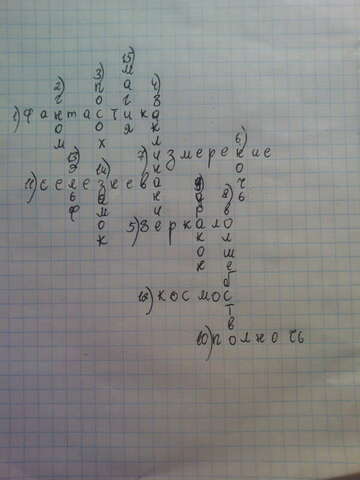 1) фантастика
2) гном
3) посох
15) магия
4) заклинани
7) измерение
6) ночь
11) селезнева
13) эльф
14) замок
5) зеркало
9) дракон
8) волшебство
12) космос
10) полночь